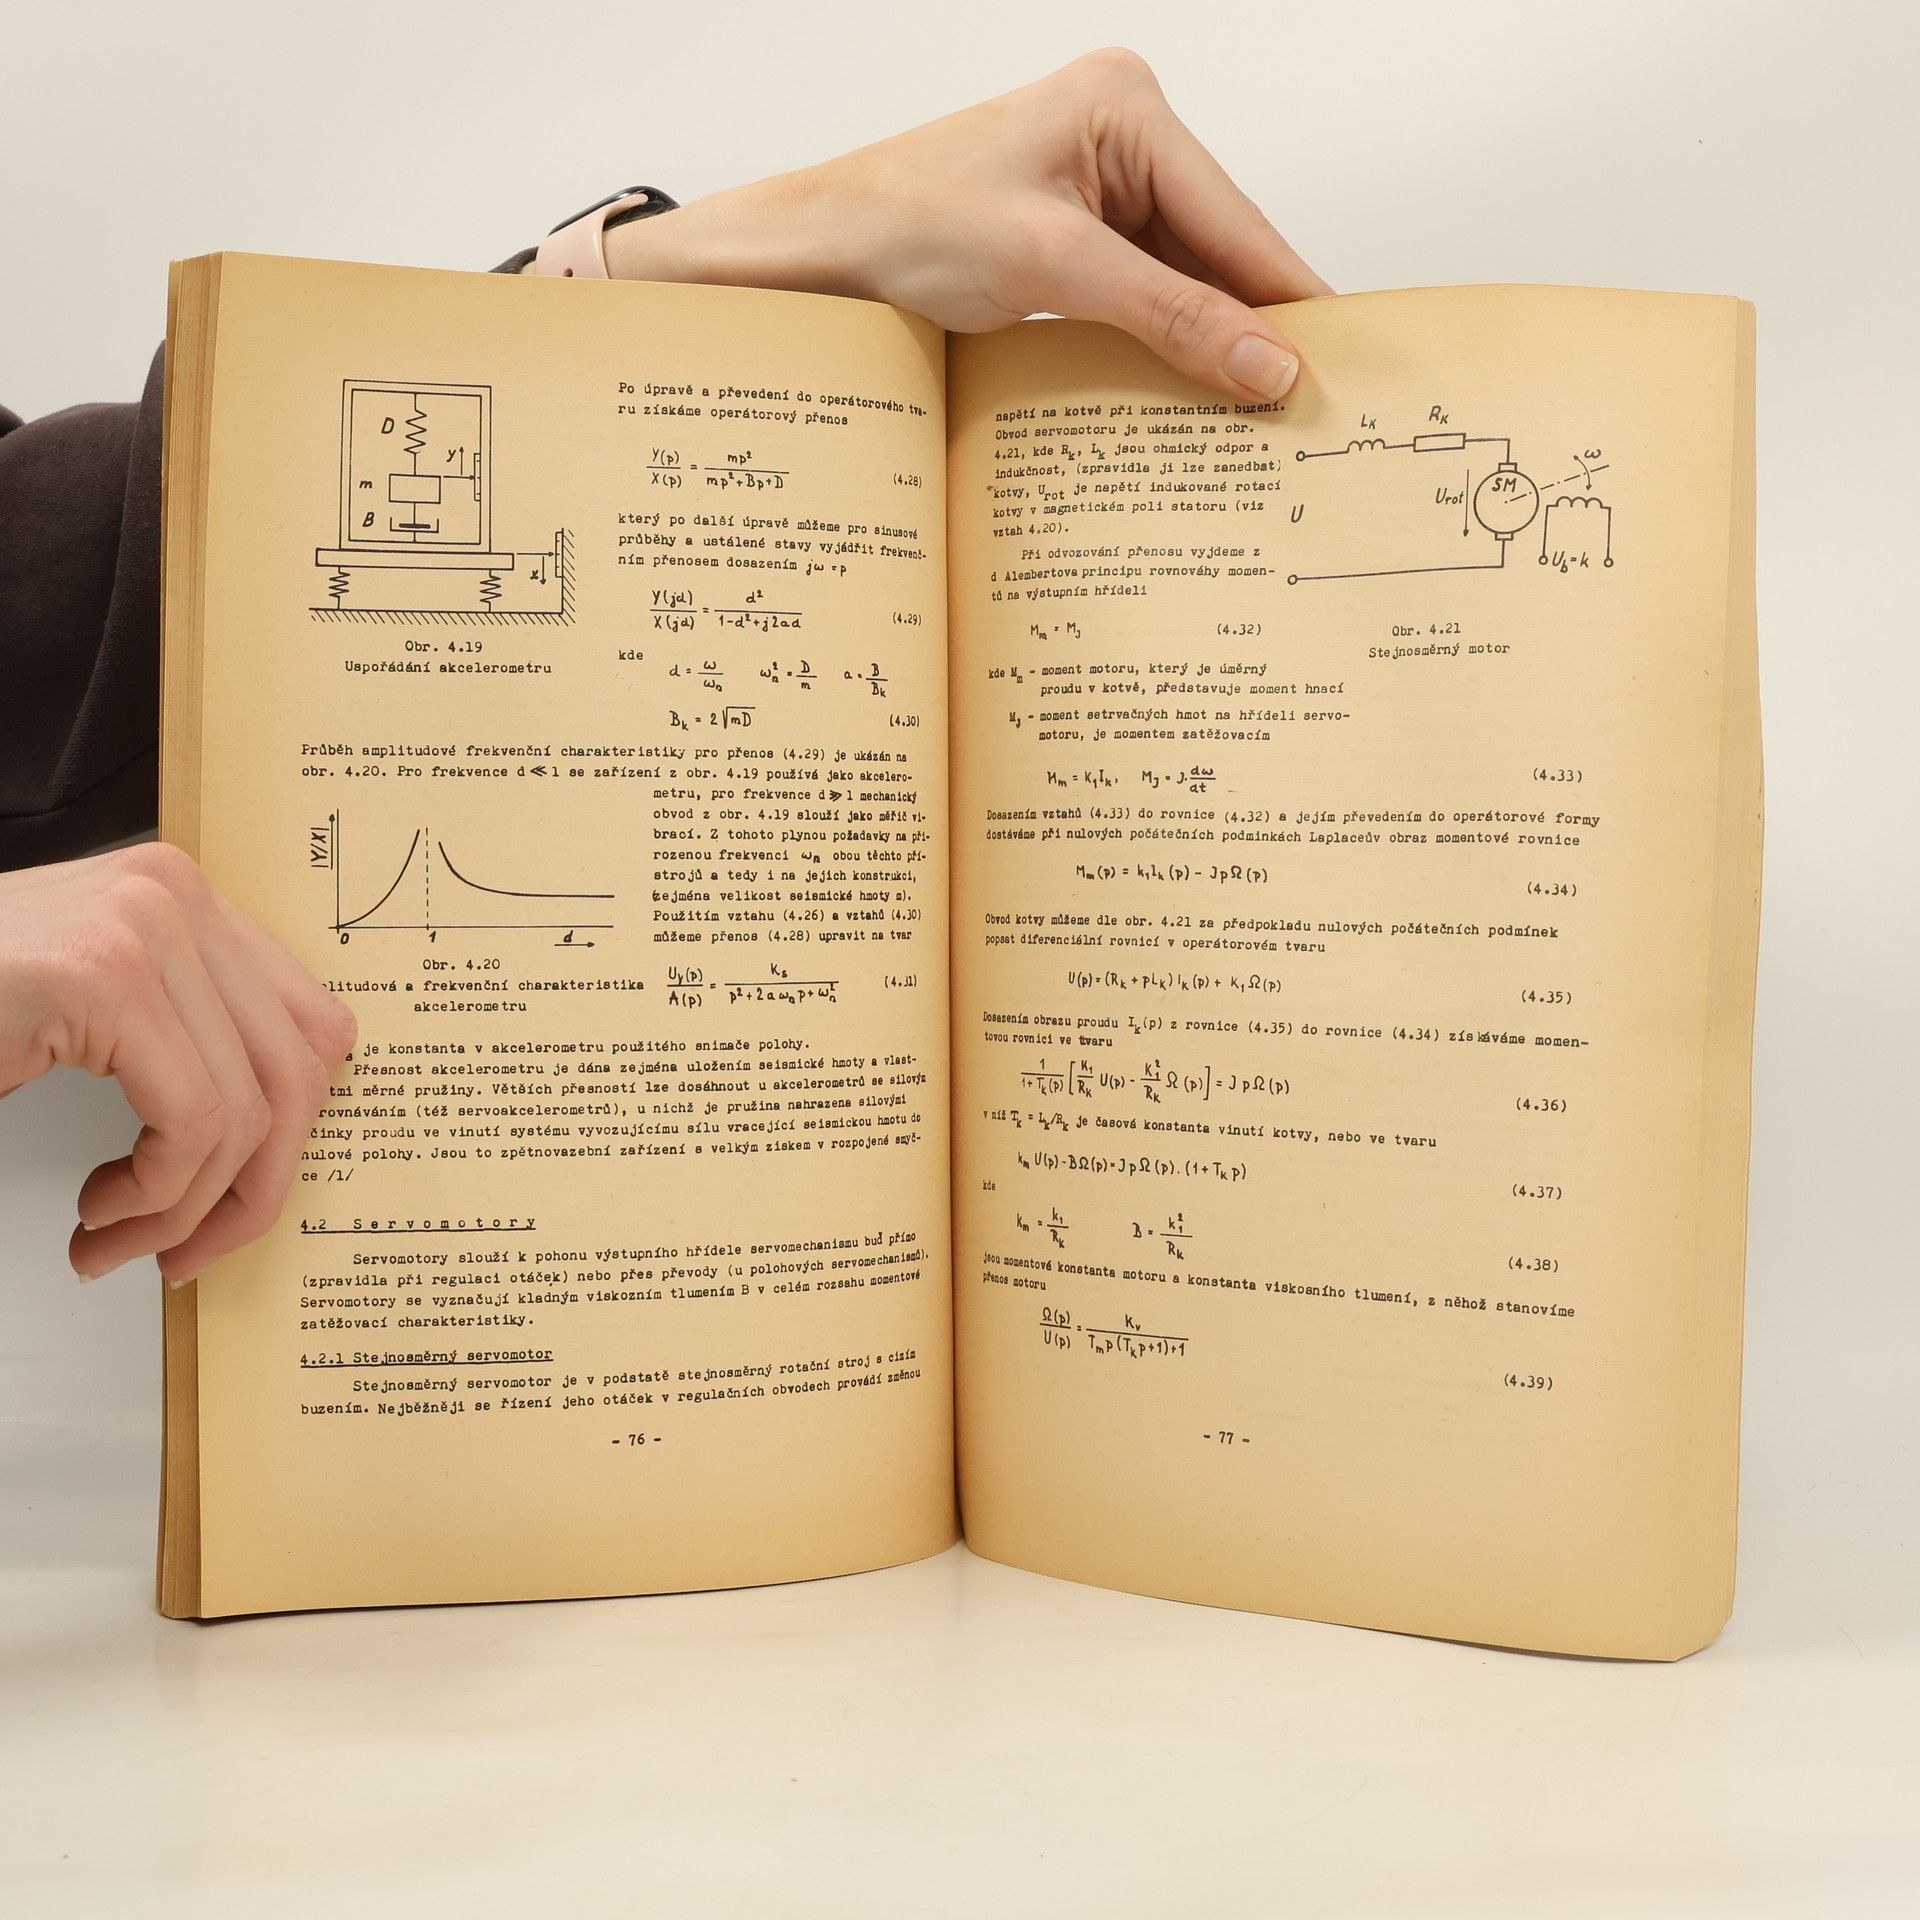 D
y
m
B
x
Obr. 4.19
Uspořádání akcelerometru
Po úpravě a převedení do operátorového tva-
ru získáme operátorový přenos
Y(p)/X(p) = mp²/(mp²+Bp+D) (4.28)
který po další úpravě můžeme pro sinusové
průběhy a ustálené stavy vyjádřit frekvenč-
ním přenosem dosazením jω = p
Y(jd)/X(jd) = d²/(1-d²+j2ad) (4.29)
kde
d = ω/ωₙ ωₙ² = D/m a = B/Bₖ
Bₖ = 2√mD (4.30)
Průběh amplitudové frekvenční charakteristiky pro přenos (4.29) je ukázán na
obr. 4.20. Pro frekvence d ≪ 1 se zařízení z obr. 4.19 používá jako akcelero-
metru, pro frekvence d ≫ 1 mechanický
obvod z obr. 4.19 slouží jako měřič vi-
brací. Z tohoto plynou požadavky na při-
rozenou frekvenci ωₙ obou těchto pří-
strojů a tedy i na jejich konstrukci,
(zejména velikost seismické hmoty m).
Použitím vztahu (4.26) a vztahů (4.30)
můžeme přenos (4.28) upravit na tvar
|Y/X|
0 1 d
Obr. 4.20
litudová a frekvenční charakteristika
akcelerometru
U_y(p)/A(p) = K_s/(p²+2aωₙp+ωₙ²) (4.31)
s je konstanta v akcelerometru použitého snímače polohy.
Přesnost akcelerometru je dána zejména uložením seismické hmoty a vlast-
tmi měrné pružiny. Větších přesností lze dosáhnout u akcelerometrů se silovým
rovnáváním (též servoakcelerometrů), u nichž je pružina nahrazena silovými
činky proudu ve vinutí systému vyvozujícímu sílu vracející seismickou hmotu do
nulové polohy. Jsou to zpětnovazební zařízení s velkým ziskem v rozpojené smyč-
ce /1/
4.2 Servomotory
Servomotory slouží k pohonu výstupního hřídele servomechanismu buď přímo
(zpravidla při regulaci otáček) nebo přes převody (u polohových servomechanismů).
Servomotory se vyznačují kladným viskozním tlumením B v celém rozsahu momentové
zatěžovací charakteristiky.
4.2.1 Stejnosměrný servomotor
Stejnosměrný servomotor je v podstatě stejnosměrný rotační stroj s cizím
buzením. Nejběžněji se řízení jeho otáček v regulačních obvodech provádí změnou
- 76 -
napětí na kotvě při konstantním buzení.
Obvod servomotoru je ukázán na obr.
4.21, kde Rₖ, Lₖ jsou ohmický odpor a
indukčnost, (zpravidla ji lze zanedbat)
kotvy, U_rot je napětí indukované rotací
kotvy v magnetickém poli statoru (viz
vztah 4.20).
Při odvozování přenosu vyjdeme z
d Alembertova principu rovnováhy momen-
tů na výstupním hřídeli
L_K R_K
U
U_rot
SM
ω
U_b=k
Mₘ = M_J (4.32)
Obr. 4.21
Stejnosměrný motor
kde Mₘ - moment motoru, který je úměrný
proudu v kotvě, představuje moment hnací
M_J - moment setrvačných hmot na hřídeli servo-
motoru, je momentem zatěžovacím
Mₘ = K₁Iₖ, M_J = J.dω/dt (4.33)
Dosazením vztahů (4.33) do rovnice (4.32) a jejím převedením do operátorové formy
dostáváme při nulových počátečních podmínkách Laplaceův obraz momentové rovnice
Mₘ(p) = k₁Iₖ(p) - JpΩ(p) (4.34)
Obvod kotvy můžeme dle obr. 4.21 za předpokladu nulových počátečních podmínek
popsat diferenciální rovnicí v operátorovém tvaru
U(p) = (Rₖ + pLₖ) Iₖ(p) + K₁Ω(p) (4.35)
Dosazením obrazu proudu Iₖ(p) z rovnice (4.35) do rovnice (4.34) získáváme momen-
tovou rovnici ve tvaru
1/(1+Tₖ(p)) [K₁/R_K U(p) - K₁²/R_K Ω(p)] = JpΩ(p) (4.36)
v níž Tₖ = Lₖ/Rₖ je časová konstanta vinutí kotvy, nebo ve tvaru
kₘ U(p) - BΩ(p) = JpΩ(p).(1+Tₖp) (4.37)
kde
kₘ = k₁/Rₖ B = k₁²/Rₖ (4.38)
jsou momentová konstanta motoru a konstanta viskosního tlumení, z něhož stanovíme
přenos motoru
Ω(p)/U(p) = K_v/(Tₘp(Tₖp+1)+1) (4.39)
- 77 -